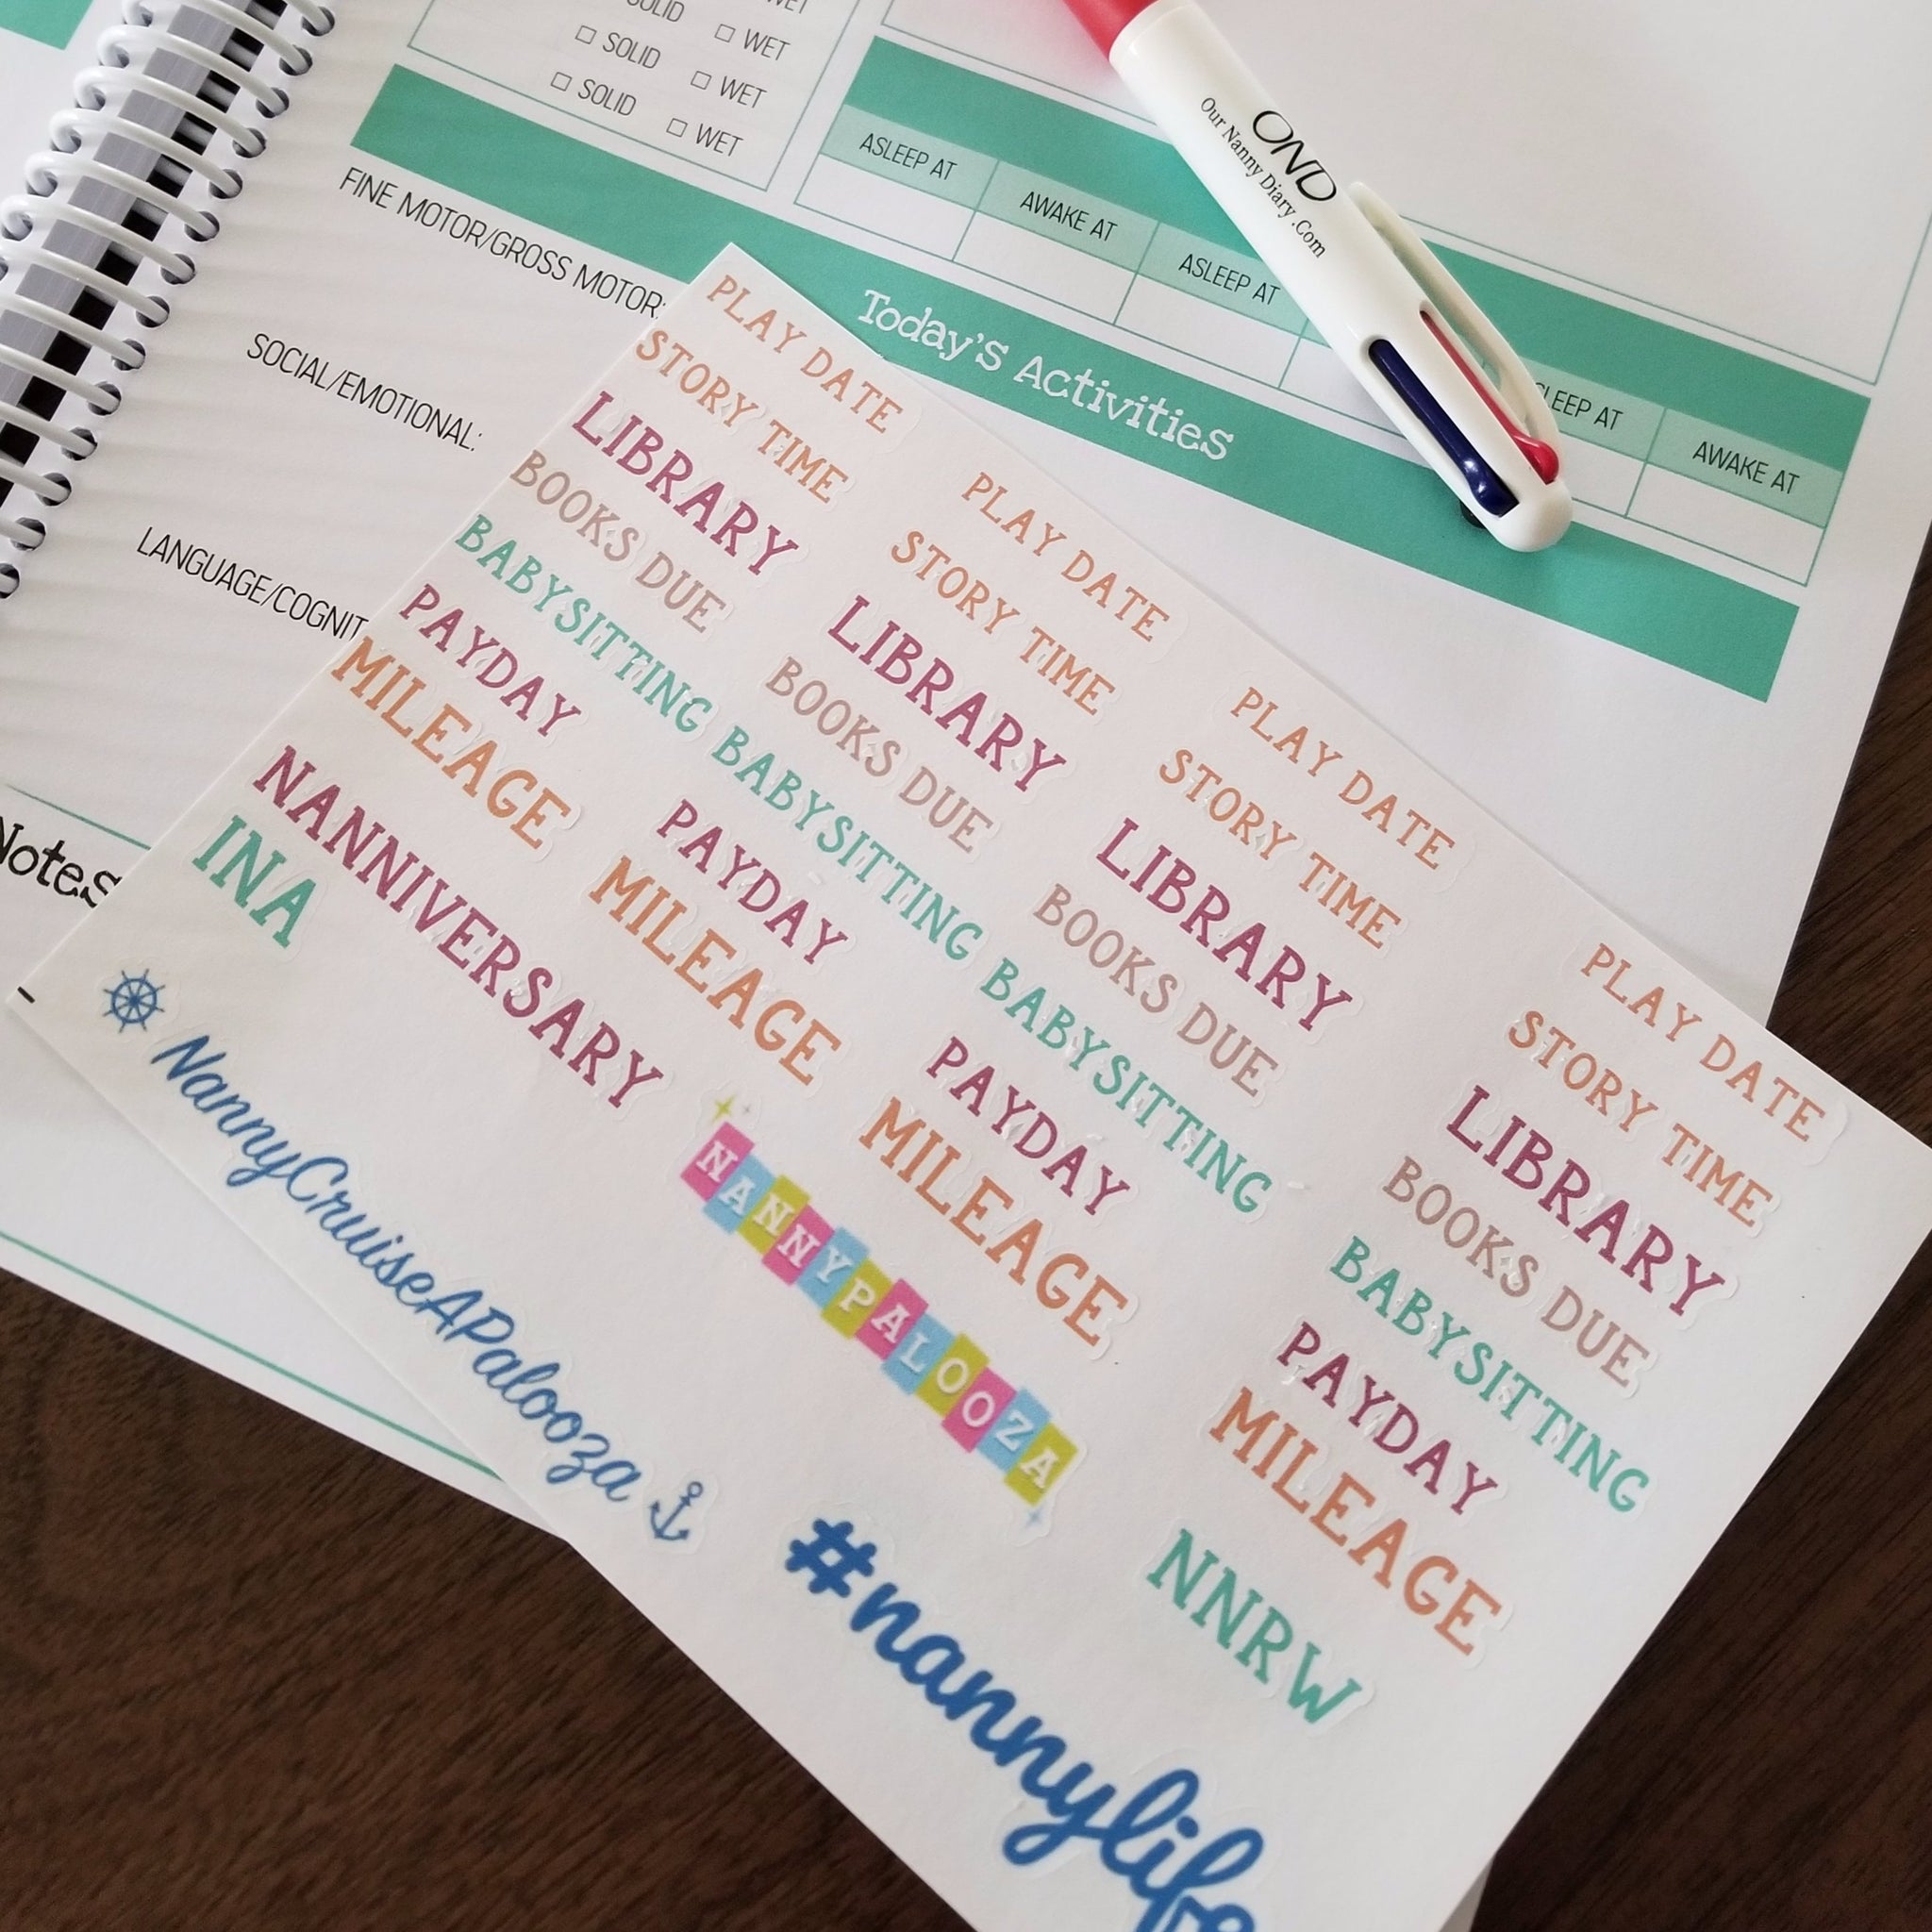 SOLID WET
SOLID WET
SOLID WET
WET
ASLEEP AT AWAKE AT ASLEEP AT ASLEEP AT AWAKE AT
OND
Our Nanny Diary .Com
Today's Activities
FINE MOTOR/GROSS MOTOR:
SOCIAL/EMOTIONAL:
LANGUAGE/COGNIT
Notes
PLAY DATE PLAY DATE PLAY DATE PLAY DATE
STORY TIME STORY TIME STORY TIME STORY TIME
LIBRARY LIBRARY LIBRARY LIBRARY
BOOKS DUE BOOKS DUE BOOKS DUE BOOKS DUE
BABYSITTING BABYSITTING BABYSITTING BABYSITTING
PAYDAY PAYDAY PAYDAY PAYDAY
MILEAGE MILEAGE MILEAGE MILEAGE
NANNIVERSARY NANNYPALOOZA NNRW
INA
NannyCruiseAPalooza
#nannylife